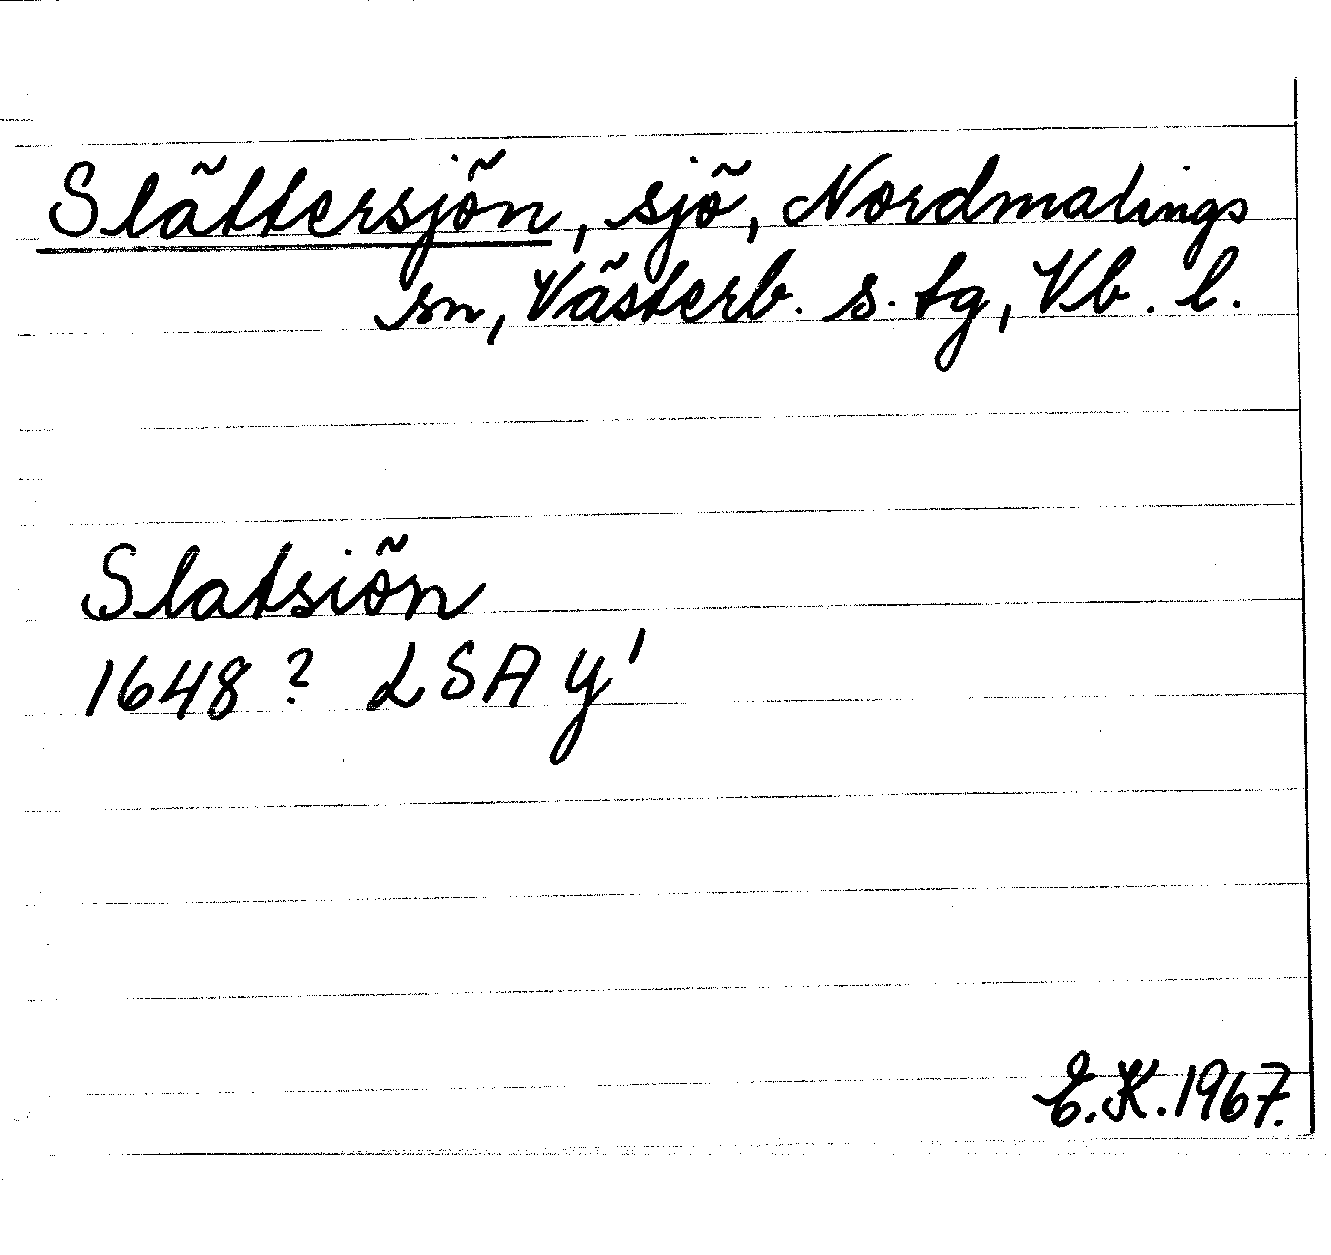 Slättersjön, sjö, Nordmalings
sn, Västerb. s. tg, Vb. l.
Slatsiön
1648? LSA Y¹
E.K. 1967.